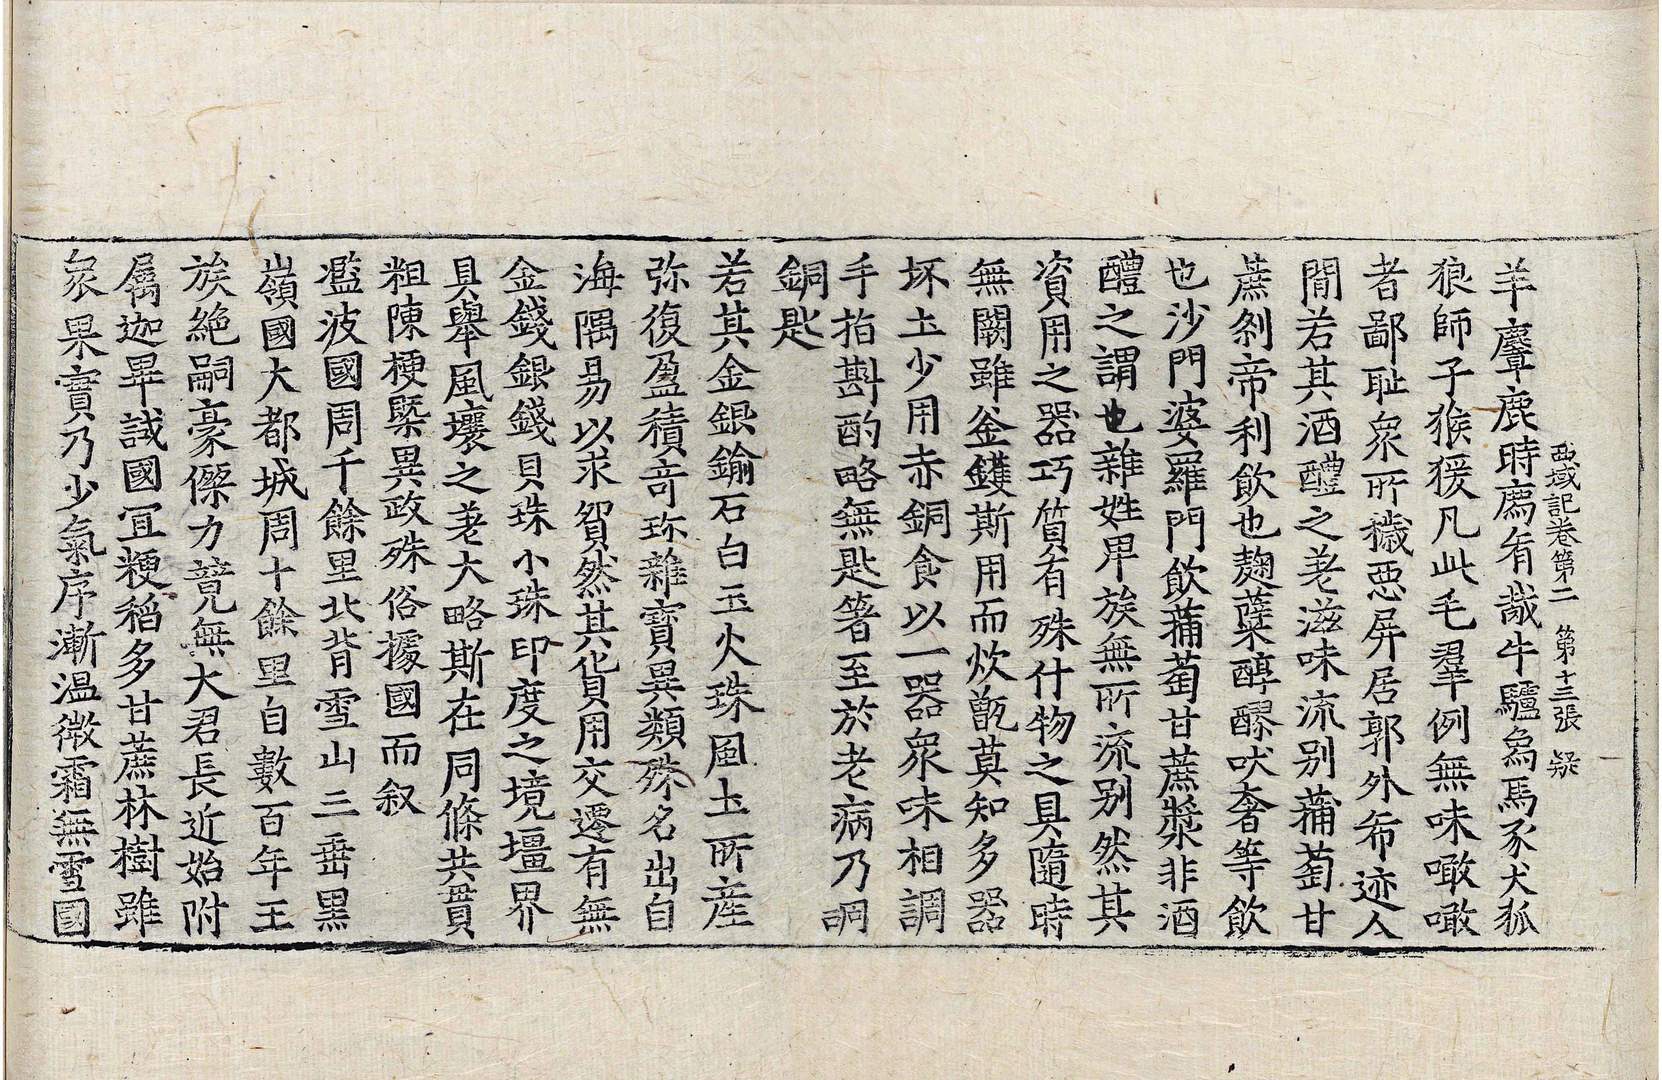 西域記卷第二　第十三張　疑
羊麞鹿時鷹肴胾牛驢爲馬豕犬狐
狼師子猴猨凡此毛羣例無味噉噉
者鄙耻衆所穢惡屏居郭外希迹人
閒若其酒醴之差滋味流別蒱萄甘
蔗刹帝利飲也麹蘖醇醪吠奢等飲
也沙門婆羅門飲蒱萄甘蔗漿非酒
醴之謂也雜姓卑族無所流別然其
資用之器巧質有殊什物之具隨時
無闕雖釜鑊斯用而炊甑莫知多器
坏土少用赤銅食以一器衆味相調
手指斟酌略無匙箸至於老病乃調
銅匙
若其金銀鍮石白玉火珠風土所產
弥復盈積奇珎雜寶異類殊名出自
海隅易以求貿然其貨用交遷有無
金錢銀錢貝珠小珠印度之境壃界
具舉風壤之差大略斯在同條共貫
粗陳梗槩異政殊俗據國而叙
濫波國周千餘里北背雪山三垂黑
嶺國大都城周十餘里自數百年王
族絶嗣豪傑力競無大君長近始附
屬迦畢試國宜粳稻多甘蔗林樹雖
衆果實乃少氣序漸溫微霜無雪國